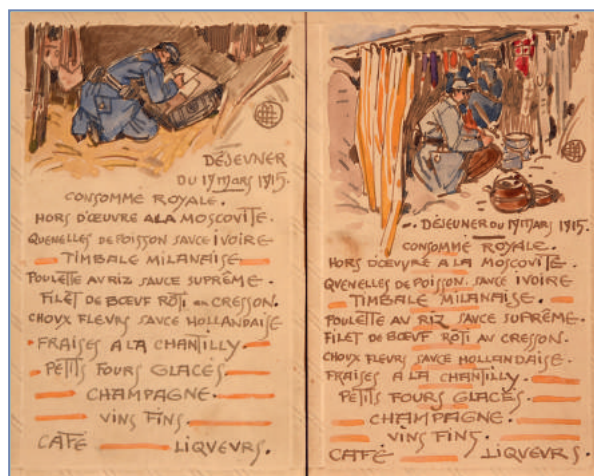 DÉJEUNER
DU 17 MARS 1915.
CONSOMME ROYALE.
HORS D'ŒUVRE A LA MOSCOVITE.
QUENELLES DE POISSON SAUCE IVOIRE
TIMBALE MILANAISE
POULETTE AU RIZ SAUCE SUPRÊME.
FILET DE BŒUF RÔTI au CRESSON.
CHOUX FLEURS SAUCE HOLLANDAISE
FRAISES A LA CHANTILLY.
PETITS FOURS GLACÉS
CHAMPAGNE.
VINS FINS.
CAFÉ LIQUEURS.
DÉJEUNER DU 17 MARS 1915.
CONSOMME ROYALE.
HORS D'ŒUVRE A LA MOSCOVITE.
QUENELLES DE POISSON. SAUCE IVOIRE
TIMBALE MILANAISE.
POULETTE AU RIZ SAUCE SUPRÊME.
FILET DE BŒUF RÔTI AU CRESSON.
CHOUX FLEURS SAUCE HOLLANDAISE.
FRAISES A LA CHANTILLY.
PETITS FOURS GLACÉS.
CHAMPAGNE.
VINS FINS.
CAFÉ LIQUEURS.